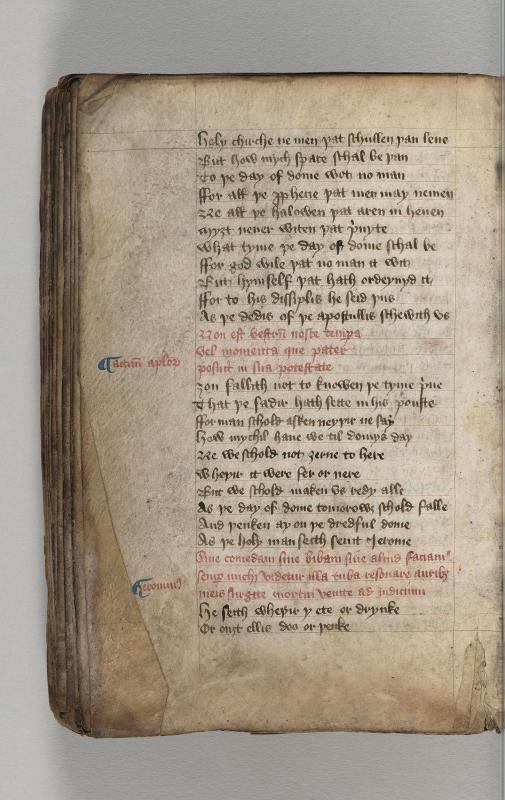 Holy chirche ne men þat schullen þan leue
But how mych space schal be þan
To þe day of dome wot no man
ffor all þe prophecie þat men may nemen
Ne all þe halowen þat aren in heuen
myȝt neuer witen þat pryuyte
What tyme þe day of dome schal be
ffor god wile þat no man it wit
But hymself þat hath ordeynyd it
ffor to his disciplis he seid þus
As þe dedis of þe apostullis schewith vs
Non est vestrū nosse tempa
vel momenta que pater
Actuū aplor
posuit in sua potestate
ȝou fallith not to knowen þe tyme
That þe fadir hath sette in his pouste
ffor man schold asken neyþir ne say
how mychil haue we til domys day
Ne we schold not ȝerne to here
Wheþir it were fer or nere
But we schold maken vs redy alle
As þe day of dome tomorow schold falle
And þenken ay on þe dredful dome
As þe holy man seith seint Jerome
Siue comedam siue bibam siue aliud faciam
semp michi videtur illa tuba resonare aurib
Jeronimus
meis surgite mortui venite ad judicium
He seith wheþir y ete or drynke
Or ouȝt ellis doo or þenke